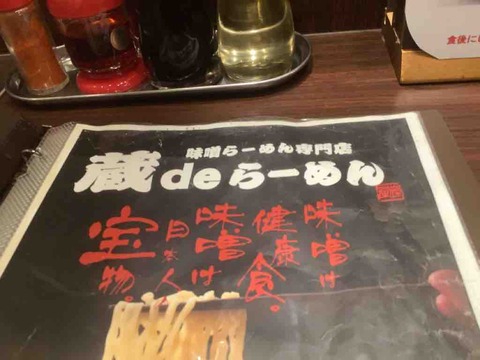 食後に
味噌らーめん専門店
蔵deらーめん
味噌は
健康食。
味噌は
日本人の
宝物。